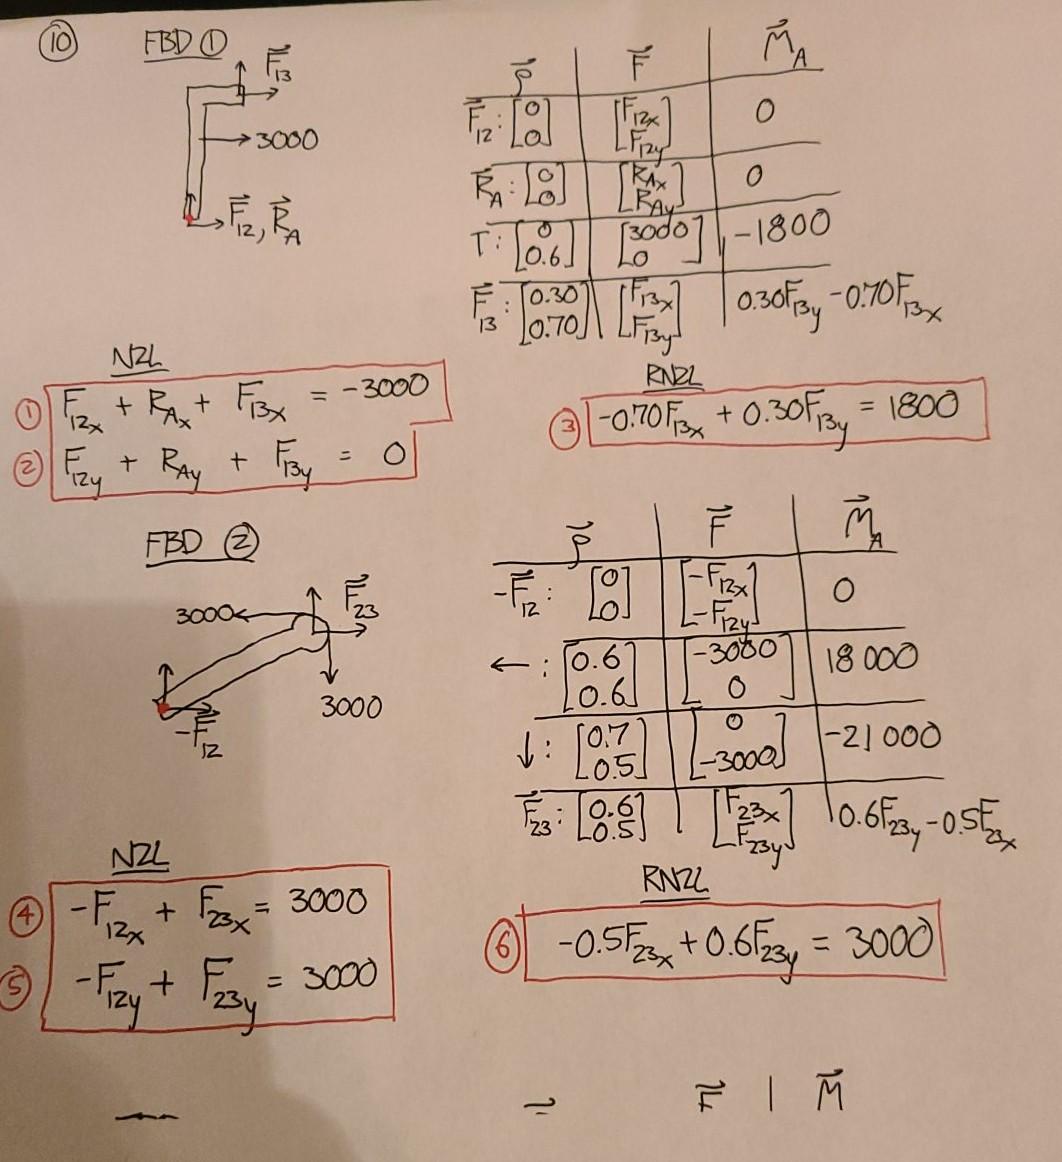 ⑩ FBD ①
F⃗₁₃
3000
F⃗₁₂, R⃗_A
ρ⃗ | F⃗ | M⃗_A
F⃗₁₂: [0 0] | [F₁₂ₓ F₁₂y] | 0
R⃗_A: [0 0] | [R_Ax R_Ay] | 0
T: [0 0.6] | [3000 0] | -1800
F⃗₁₃: [0.30 0.70] | [F₁₃ₓ F₁₃y] | 0.30F₁₃y - 0.70F₁₃ₓ
N2L
① F₁₂ₓ + R_Ax + F₁₃ₓ = -3000
② F₁₂y + R_Ay + F₁₃y = 0
RN2L
③ -0.70F₁₃ₓ + 0.30F₁₃y = 1800
FBD ②
3000
F⃗₂₃
3000
-F⃗₁₂
ρ⃗ | F⃗ | M⃗_A
-F⃗₁₂: [0 0] | [-F₁₂ₓ -F₁₂y] | 0
←: [0.6 0.6] | [-3000 0] | 18 000
↓: [0.7 0.5] | [0 -3000] | -21 000
F⃗₂₃: [0.6 0.5] | [F₂₃ₓ F₂₃y] | 0.6F₂₃y - 0.5F₂₃ₓ
N2L
④ -F₁₂ₓ + F₂₃ₓ = 3000
⑤ -F₁₂y + F₂₃y = 3000
RN2L
⑥ -0.5F₂₃ₓ + 0.6F₂₃y = 3000
F⃗ | M⃗